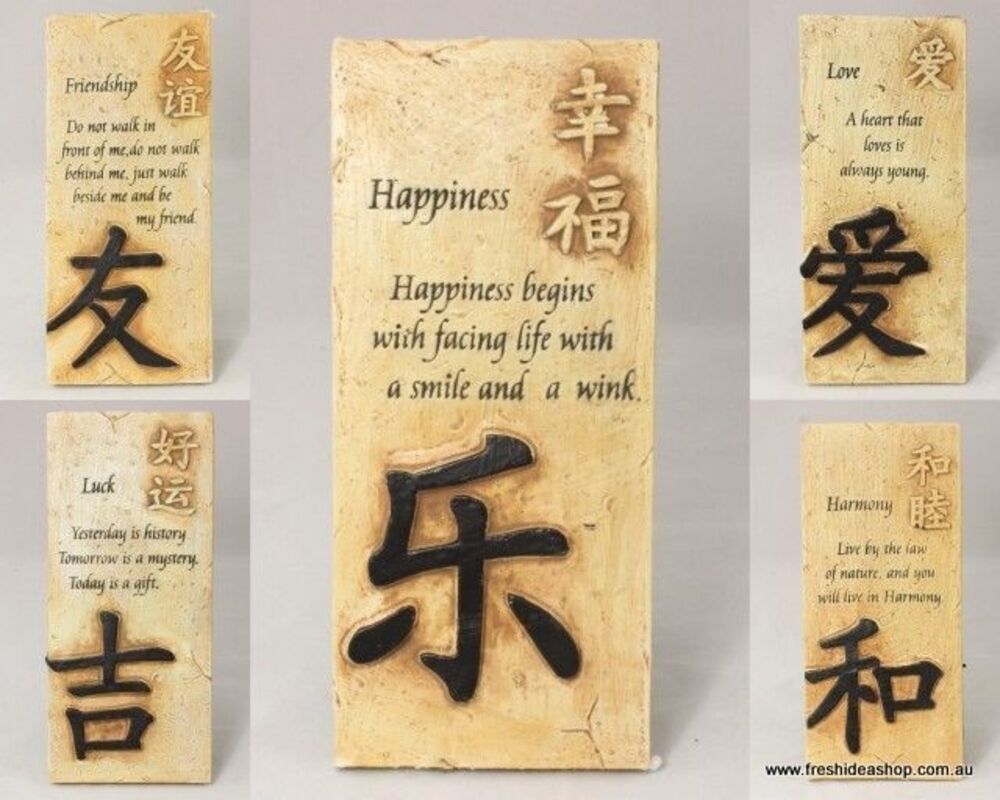 友
谊
Friendship
Do not walk in
front of me,do not walk
behind me, just walk
beside me and be
my friend.
友
幸
福
Happiness
Happiness begins
with facing life with
a smile and a wink.
乐
爱
Love
A heart that
loves is
always young.
爱
好
运
Luck
Yesterday is history
Tomorrow is a mystery.
Today is a gift.
吉
和
睦
Harmony
Live by the law
of nature, and you
will live in Harmony.
和
www.freshideashop.com.au